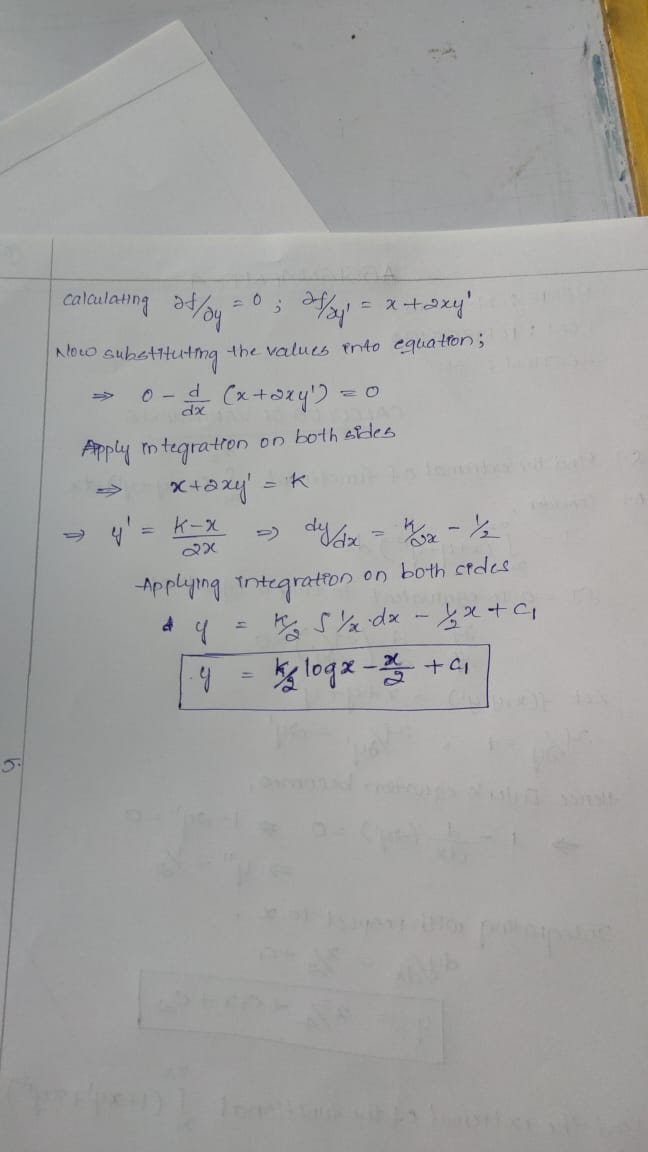 calculating ∂f/∂y = 0 ; ∂f/∂y' = x + 2xy'
Now substituting the values into equation;
⇒ 0 - d/dx (x+2xy') = 0
Apply integration on both sides
⇒ x+2xy' = K
⇒ y' = K-x/2x ⇒ dy/dx = K/2x - 1/2
Applying integration on both sides
y = K/2 ∫ 1/x · dx - 1/2 x + C1
y = K/2 log x - x/2 + C1
5.